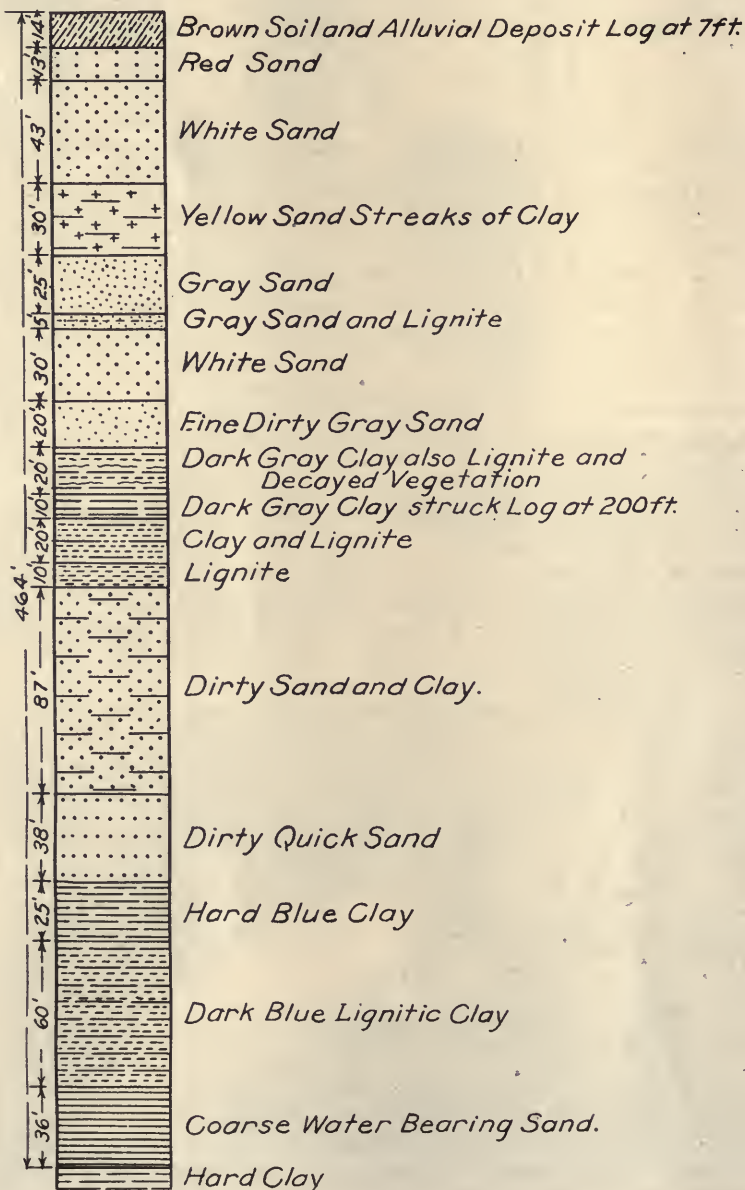 14' Brown Soil and Alluvial Deposit Log at 7ft.
13' Red Sand
43' White Sand
30' Yellow Sand Streaks of Clay
25' Gray Sand
5' Gray Sand and Lignite
30' White Sand
20' Fine Dirty Gray Sand
20' Dark Gray Clay also Lignite and
Decayed Vegetation
10' Dark Gray Clay struck Log at 200ft.
20' Clay and Lignite
10' Lignite
464'
87' Dirty Sand and Clay.
38' Dirty Quick Sand
25' Hard Blue Clay
60' Dark Blue Lignitic Clay
36' Coarse Water Bearing Sand.
Hard Clay